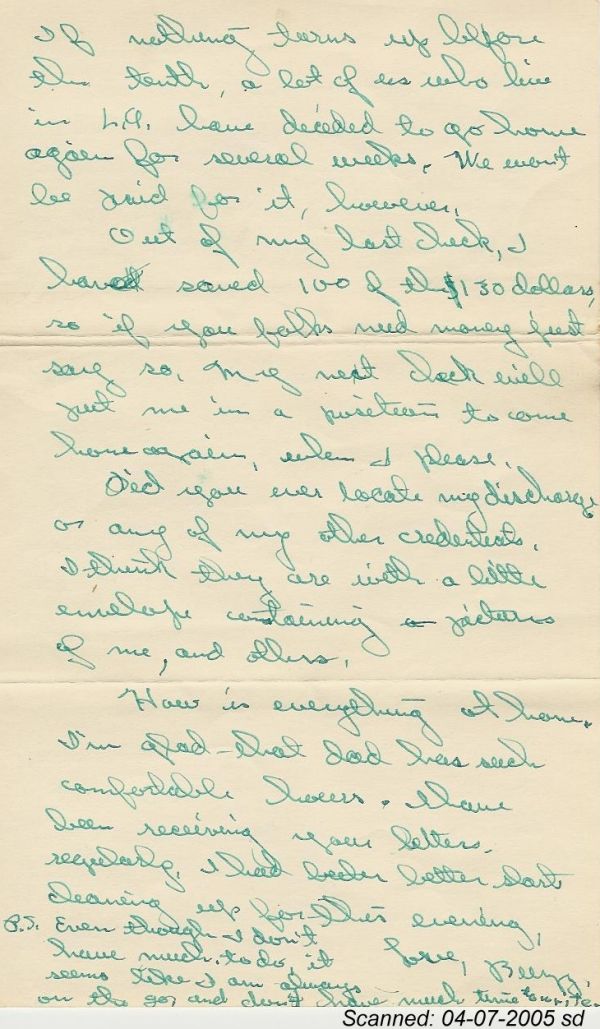 If nothing turns up before
the tenth, a lot of us who live
in L.A. have decided to go home
again for several weeks. We won't
be paid for it, however.
Out of my last check, I
have saved 100 of the $130 dollars,
so if you folks need money just
say so. My next check will
put me in a position to come
home again, when I please.
Did you ever locate my discharge
or any of my other credentials.
I think they are with a little
envelope containing a pictures
of me, and others.
How is everything at home.
I'm glad that dad has such
comfortable hours. I have
been receiving your letters
regularly. I had better start
cleaning up for this evening.
Love,
P.S. Even though I don't
have much to do, it
seems like I am always
on the go, and don't have much time to write.
Scanned: 04-07-2005 sd